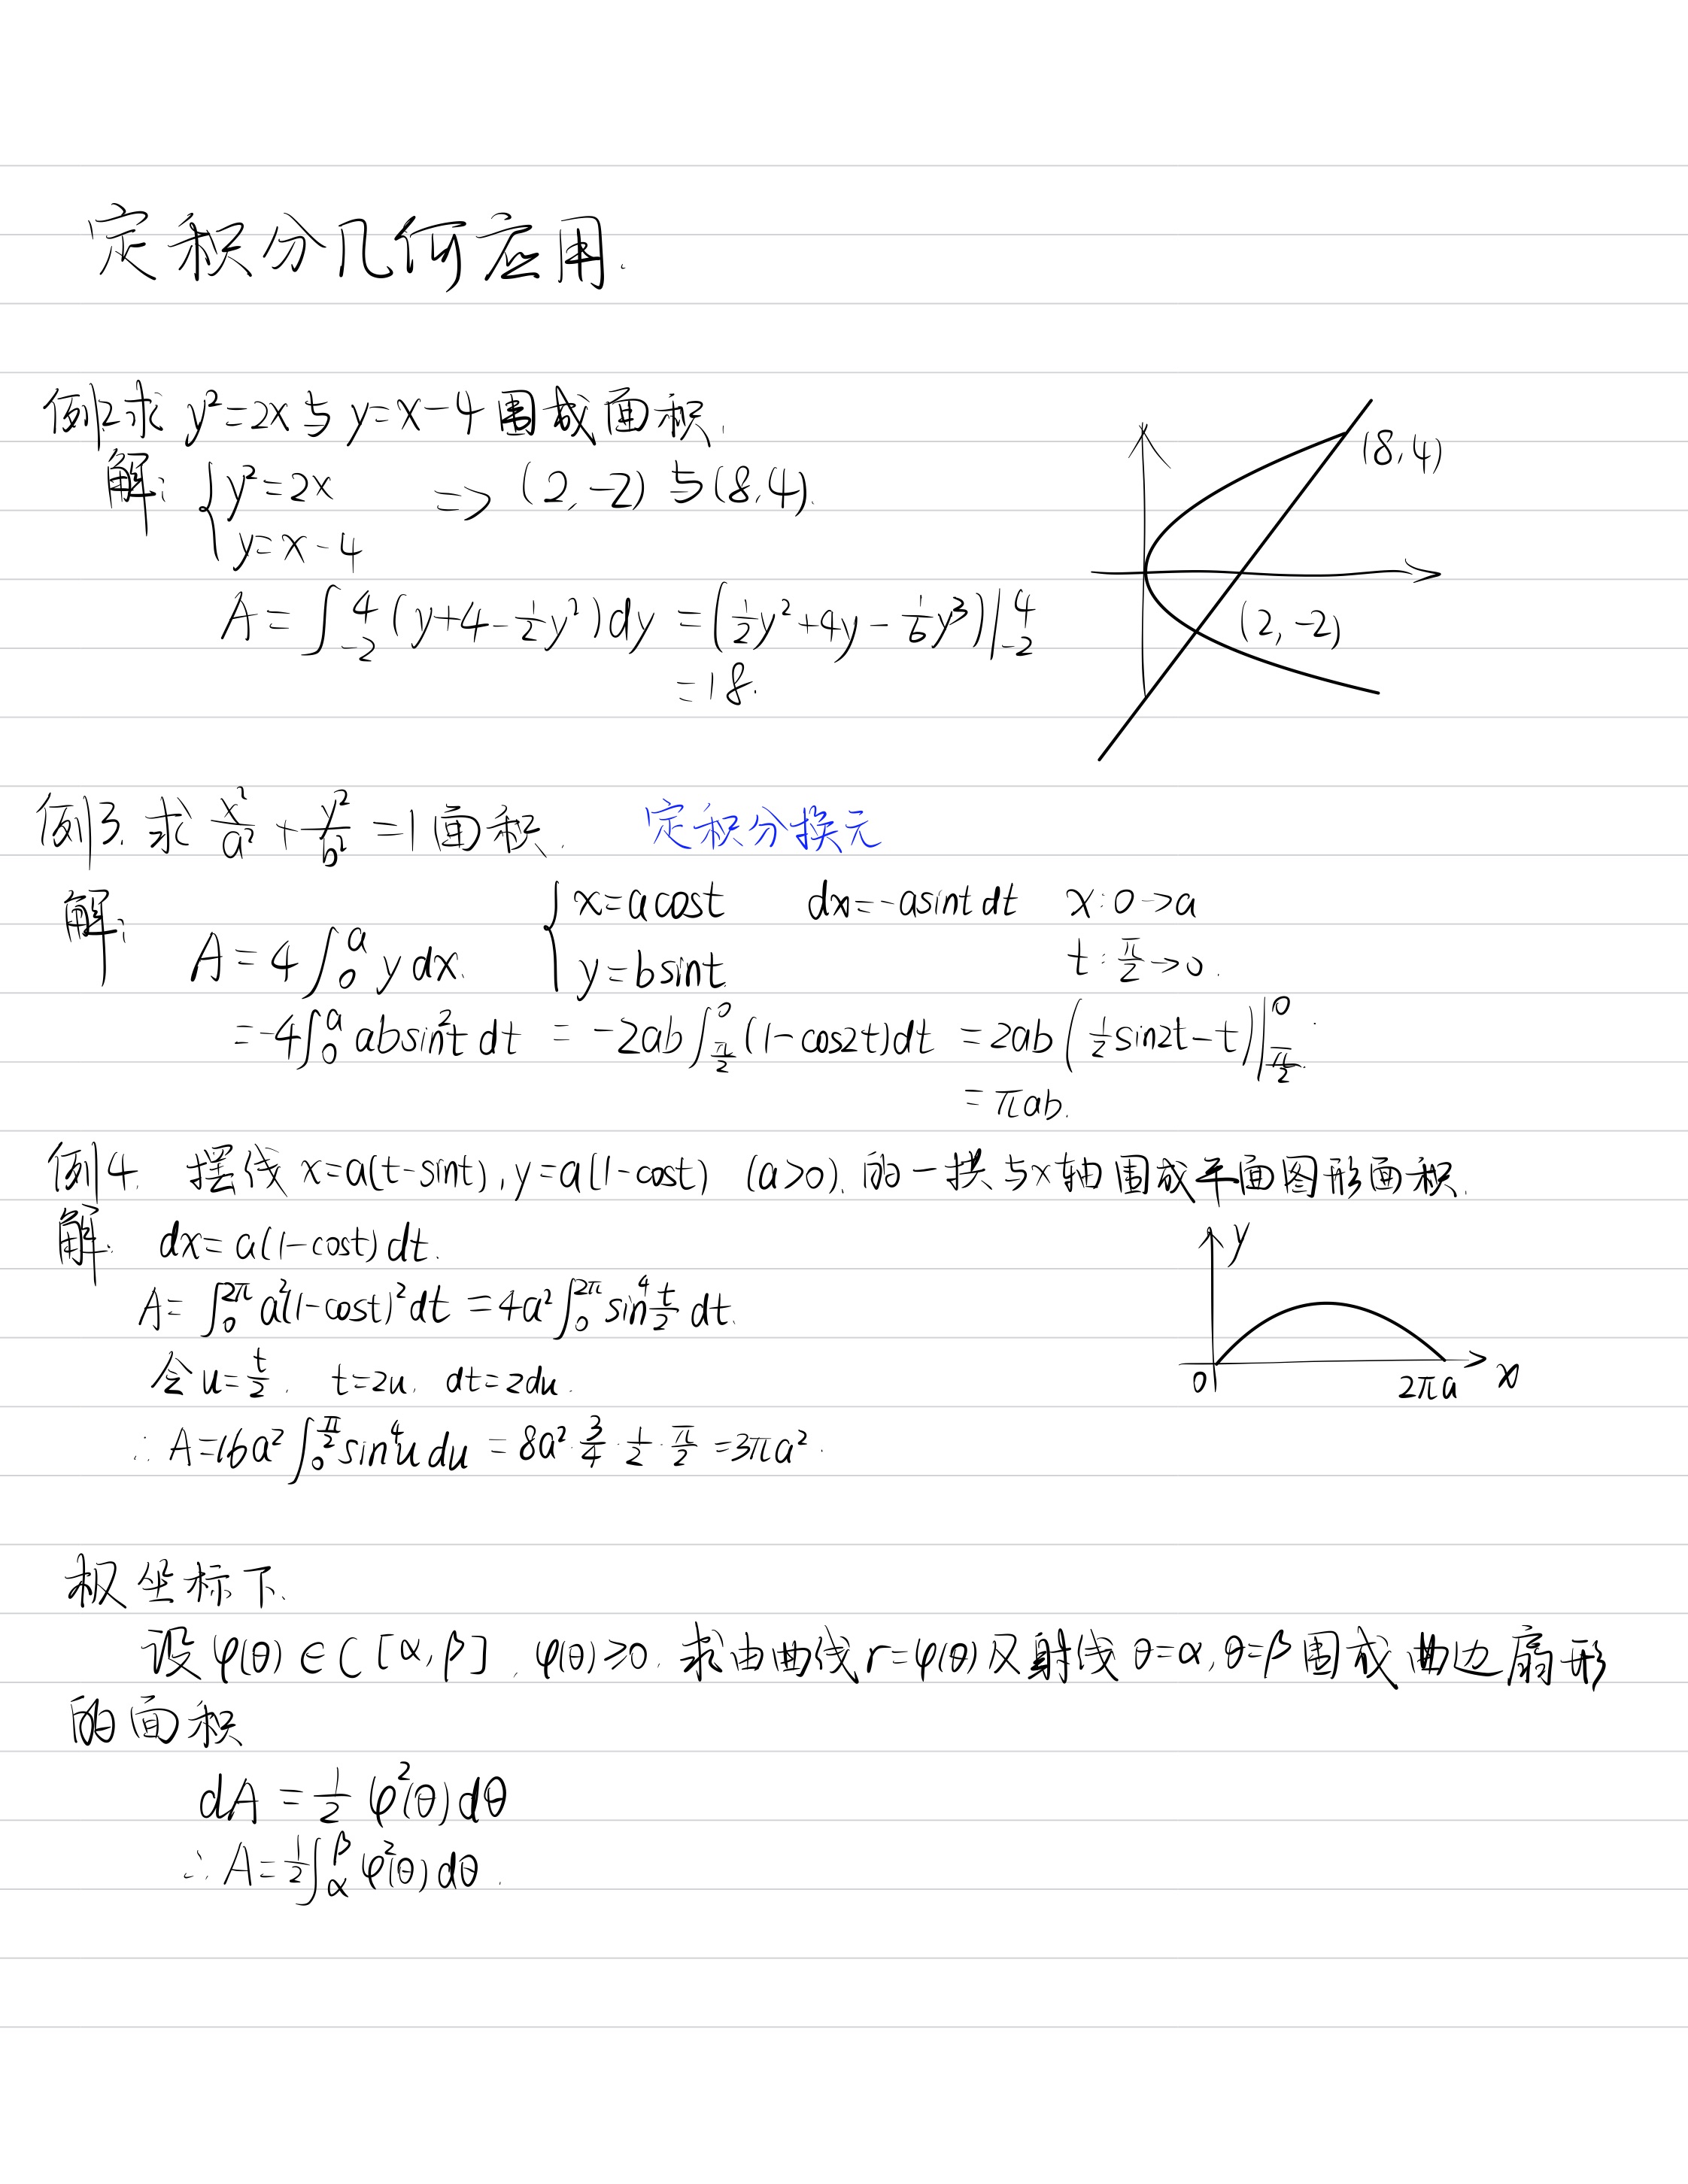 定积分几何应用.
例2求 y²=2x与y=x-4围成面积.
解: { y²=2x => (2,-2)与(8,4).
y=x-4
(8,4)
(2,-2)
A=∫₋₂⁴(y+4-½y²)dy =(½y²+4y-⅙y³)|₋₂⁴
=18.
例3.求 x²/a²+y²/b²=1面积. 定积分换元
解: { x=acost dx=-asint dt x:0->a
A=4∫₀ᵃ y dx. y=bsint t:π/2->0.
=-4∫₀ᵃ absin²t dt = -2ab∫_{π/2}^0 (1-cos2t)dt =2ab(½sin2t-t)|_{π/2}^0.
=πab.
例4. 摆线x=a(t-sint),y=a(1-cost) (a>0).的一拱与x轴围成平面图形面积.
解. dx=a(1-cost)dt.
A=∫_0^{2π} a²(1-cost)²dt =4a²∫_0^{2π} sin⁴ t/2 dt.
y
0 2πa x
令u=t/2. t=2u. dt=2du.
∴A=16a²∫_0^{π/2} sin⁴u du = 8a²·3/4·1/2·π/2 =3πa².
极坐标下.
设φ(θ)∈C[α,β],φ(θ)≥0.求由曲线r=φ(θ)及射线θ=α,θ=β围成曲边扇形
的面积
dA=½φ²(θ)dθ
∴A=½∫_α^β φ²(θ)dθ.